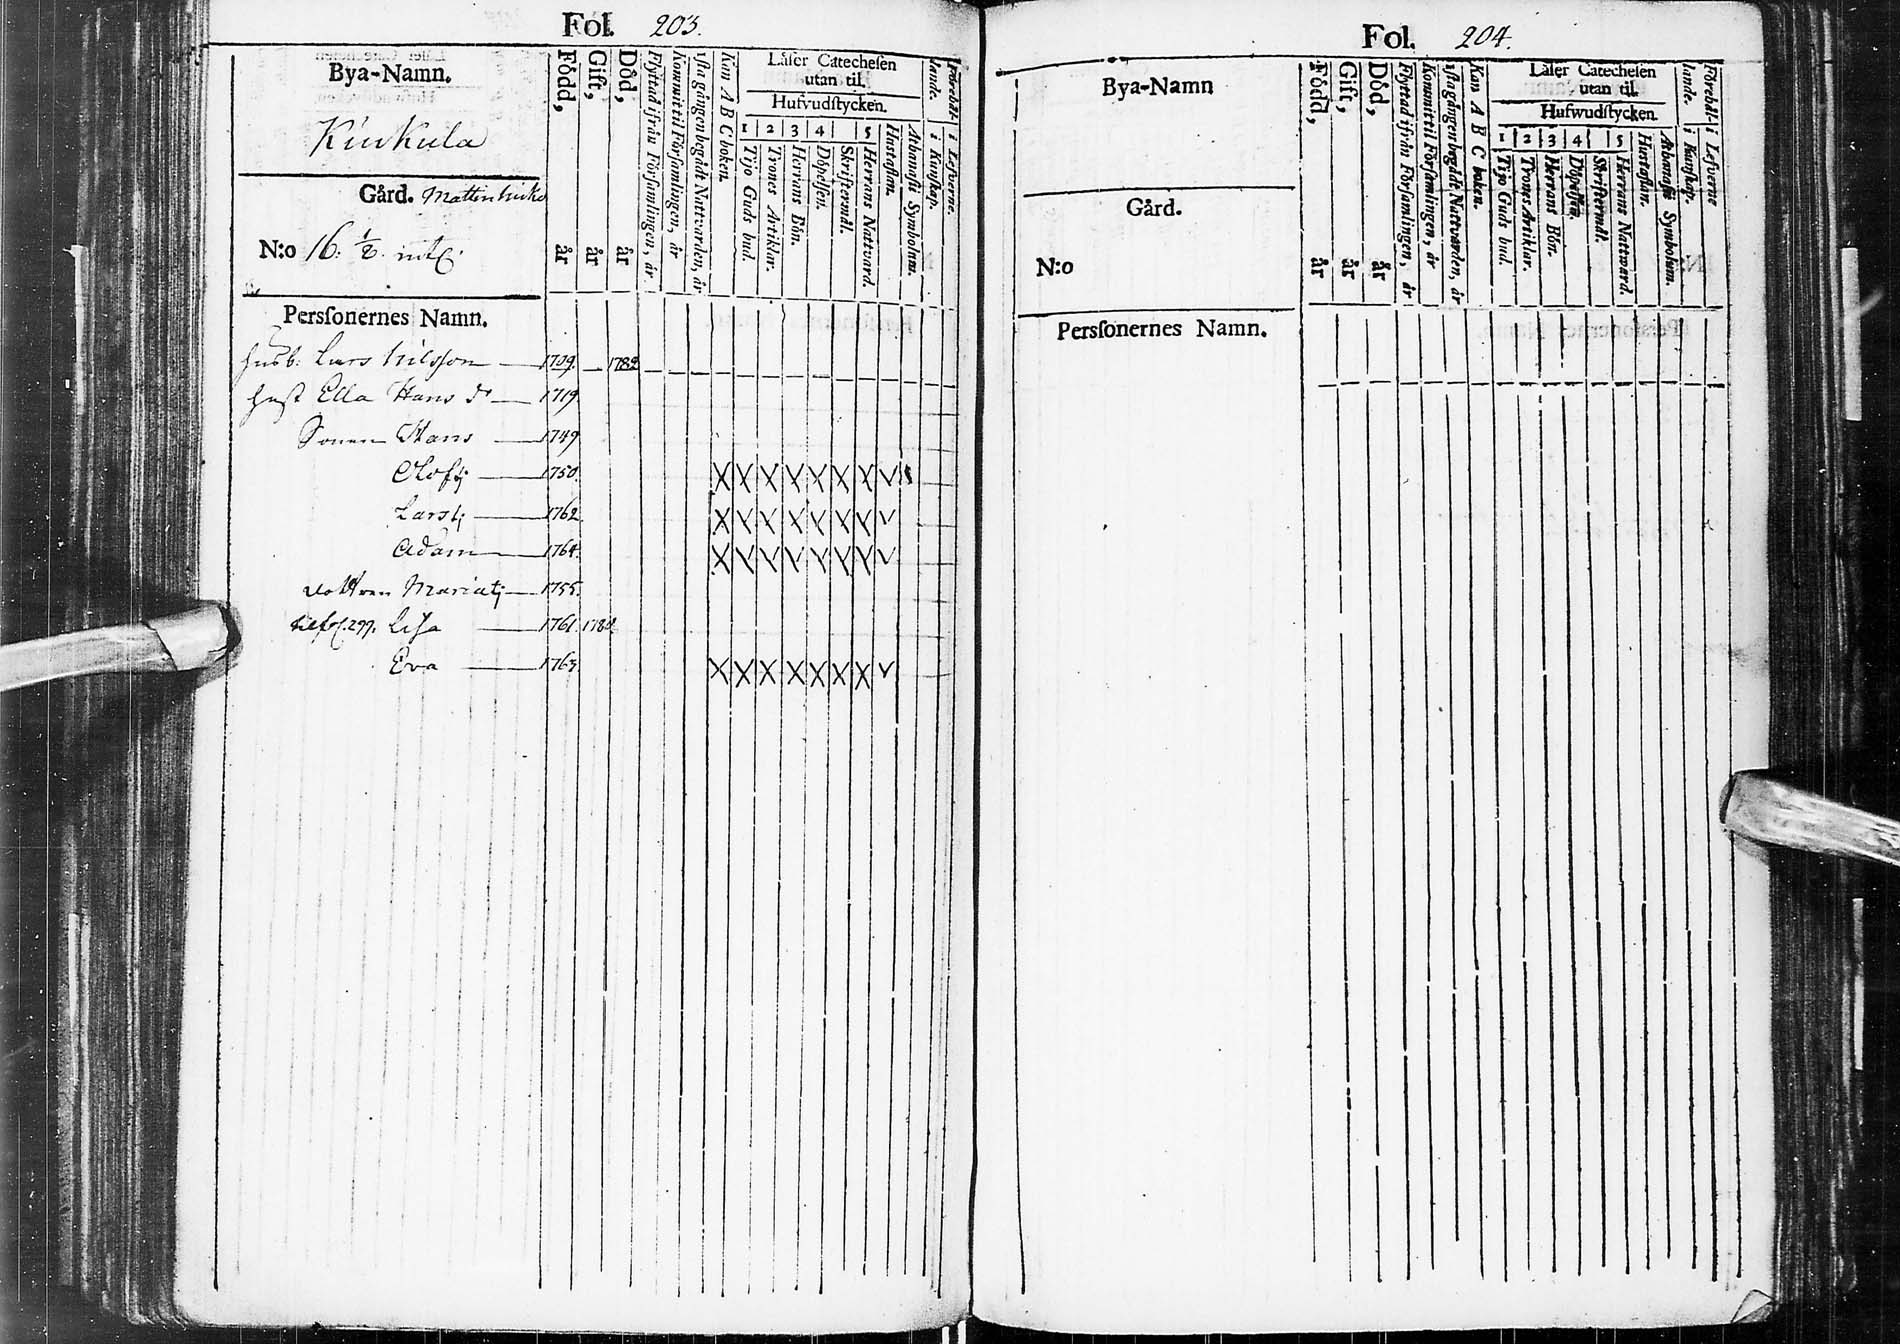 Fol. 203.
Bya-Namn.
Kiukula
Gård.
N:o 16. 1/2. mtl.
Född, år
Gift, år
Död, år
Flyttad ifrån Församlingen, år
Kommit til Församlingen, år
1sta gången begådt Nattvarden, år
Kan A B C boken.
Läser Catechesen
utan til.
Hufvudstycken.
1 2 3 4 5
Tijo Guds bud.
Trones Artiklar.
Herrans Bön.
Döpelsen.
Skriftermål.
Herrans Nattvard.
Hustaflan.
Athanasii Symbolum.
Förehål-
lande.
i Kunskap.
i Lefverne.
Perssonernes Namn.
Husb: Lars Nilsson — 1709. — 1782
Hust Ella Hans dr — 1719
Sonen Hans — 1749
Olof — 1750.
Lars — 1762
Adam — 1764.
Dottren Maria — 1755.
til fol. 299. Lisa — 1761. 1780
Eva — 1763.
Fol. 204.
Bya-Namn
Gård.
N:o
Född, år
Gift, år
Död, år
Flyttad ifrån Församlingen, år
Kommit til Församlingen, år
1sta gången begådt Nattvarden, år
Kan A B C boken.
Läser Catechesen
utan til.
Hufwudstycken.
1 2 3 4 5
Tijo Guds bud.
Trones Artiklar.
Herrans Bön.
Döpelsen.
Skriftermål.
Herrans Nattvard.
Hustaflan.
Athanasii Symbolum.
Förehål-
lande.
i Kunskap.
i Lefverne
Perssonernes Namn.